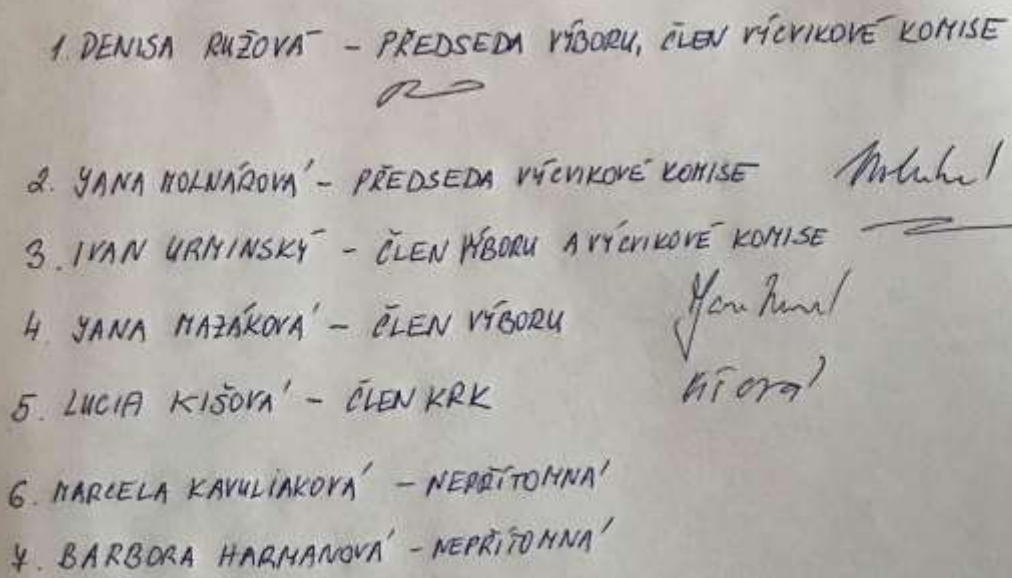 1. DENISA RUŽOVÁ - PŘEDSEDA VÝBORU, ČLEN VÝCVIKOVÉ KOMISE
2. JANA MOLNÁROVÁ - PŘEDSEDA VÝCVIKOVÉ KOMISE
3. IVAN URMINSKÝ - ČLEN VÝBORU A VÝCVIKOVÉ KOMISE
4 JANA MAZÁKOVÁ - ČLEN VÝBORU
5. LUCIA KIŠOVÁ - ČLEN KRK
6. MARCELA KAVULIAKOVÁ - NEPŘÍTOMNÁ
7. BARBORA HARMANOVÁ - NEPŘÍTOMNÁ